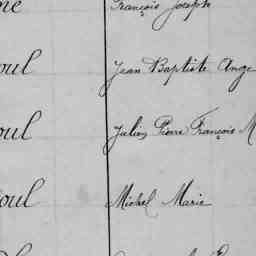 François Joseph
oul Jean Baptiste Ange
oul Julien Pierre François M
oul Michel Marie